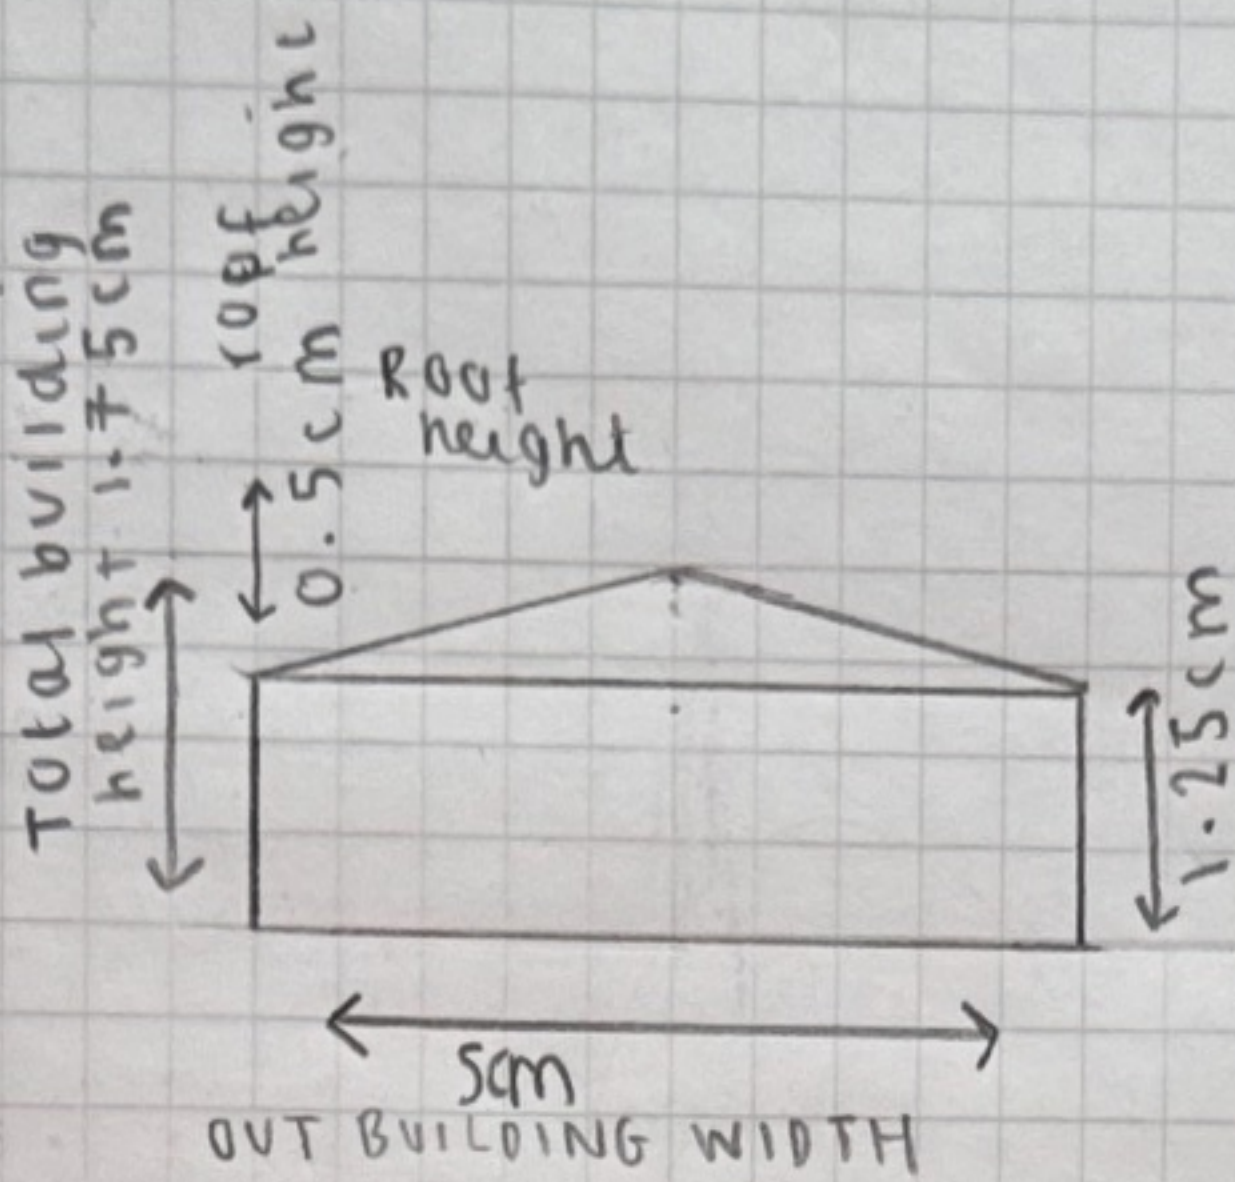 Total building
height 1.75cm
roof
height
0.5cm
Roof
height
1.25cm
5cm
OUT BUILDING WIDTH